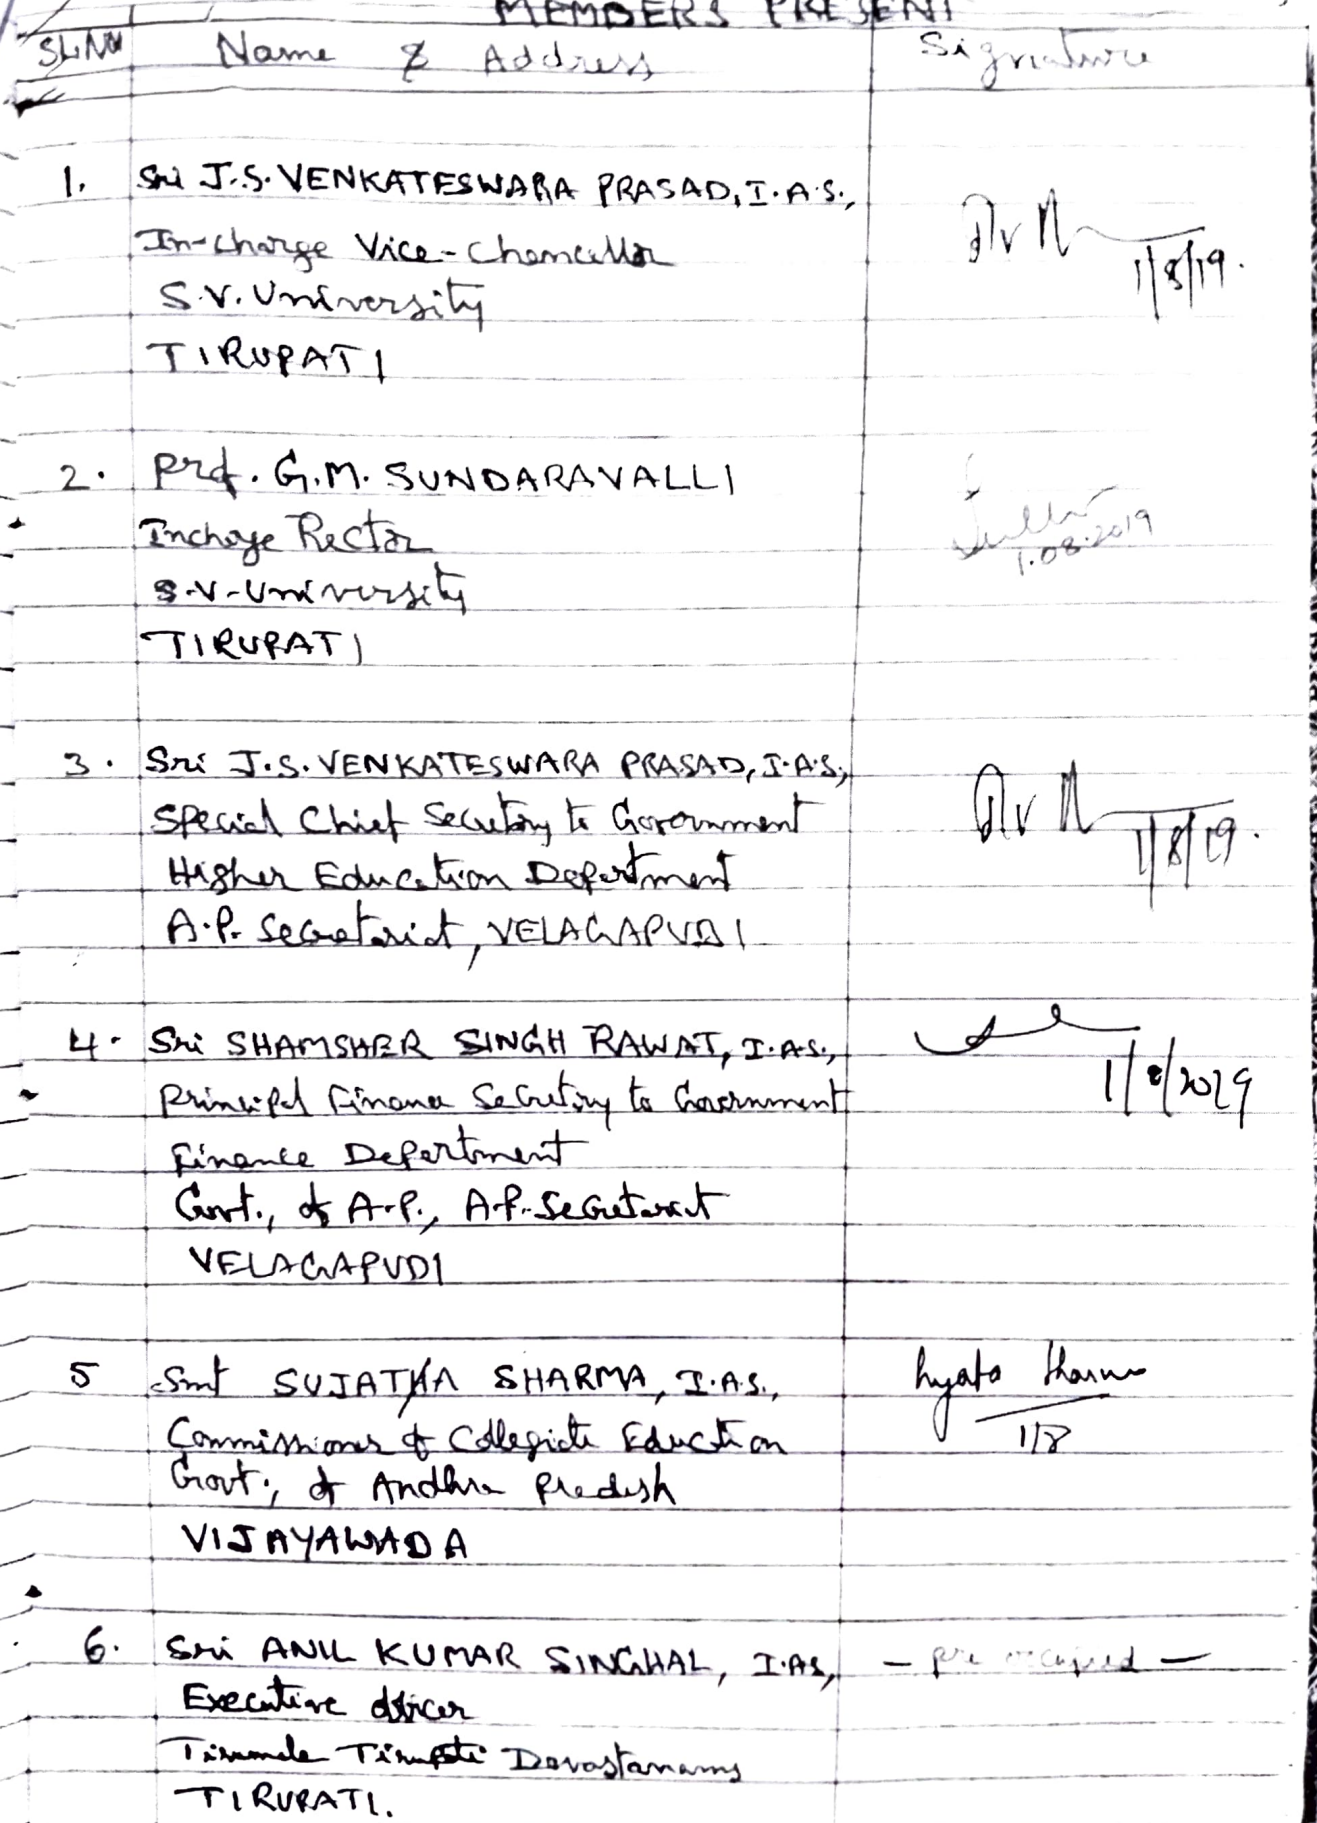 MEMBERS PRESENT
Sl.No Name & Address Signature
1. Sri J.S. VENKATESWARA PRASAD, I.A.S.,
In-charge Vice-Chancellor
S.V. University
TIRUPATI
1/8/19.
2. Prof. G.M. SUNDARAVALLI
Incharge Rector
S.V. University
TIRUPATI
1.08.2019
3. Sri J.S. VENKATESWARA PRASAD, I.A.S.,
Special Chief Secretary to Government
Higher Education Department
A.P. Secretariat, VELAGAPUDI
1/8/19.
4. Sri SHAMSHER SINGH RAWAT, I.A.S.,
Principal Finance Secretary to Government
Finance Department
Govt., of A.P., A.P. Secretariat
VELAGAPUDI
1/8/2019
5 Smt SUJATHA SHARMA, I.A.S.,
Commissioner of Collegiate Education
Govt., of Andhra Pradesh
VIJAYAWADA
Sujata Sharma
1/8
6. Sri ANIL KUMAR SINGHAL, I.AS, - Pre occupied -
Executive Officer
Tirumala Tirupati Devastanams
TIRUPATI.